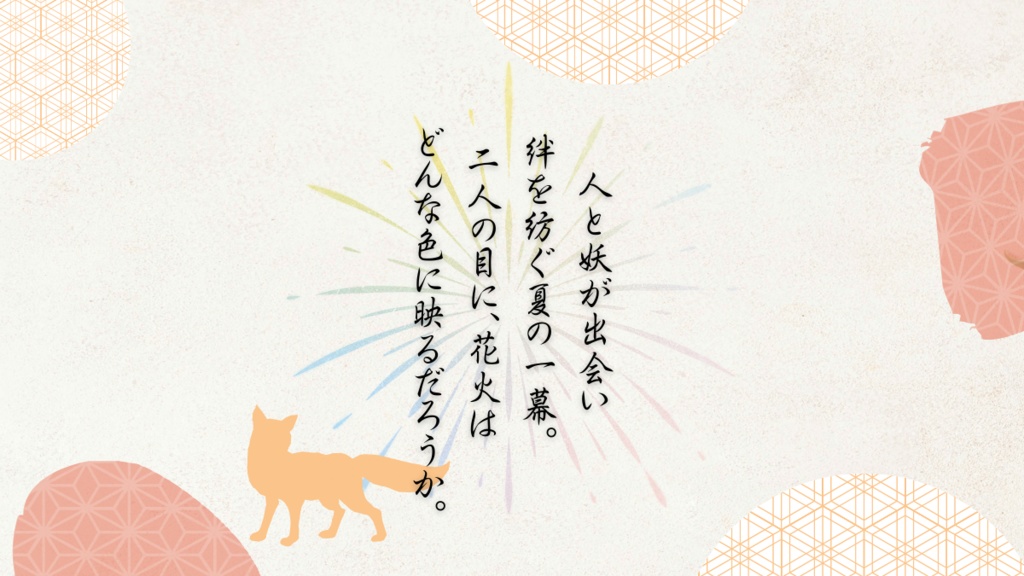 人と妖が出会い
絆を紡ぐ夏の一幕。
二人の目に、花火は
どんな色に映るだろうか。